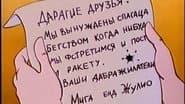 ДАРАГИЕ ДРУЗЬЯ!
МЫ ВЫНУЖДЕНЫ СПАСАЦА
БЕГСТВОМ КОГДА НИБУДЬ
МЫ ФСТРЕТИМСЯ И ПОСТ
РАКЕТУ.
ВАШИ ДАБРАЖИЛАТЕЛИ
МИГА ЕНД ЖУЛИО